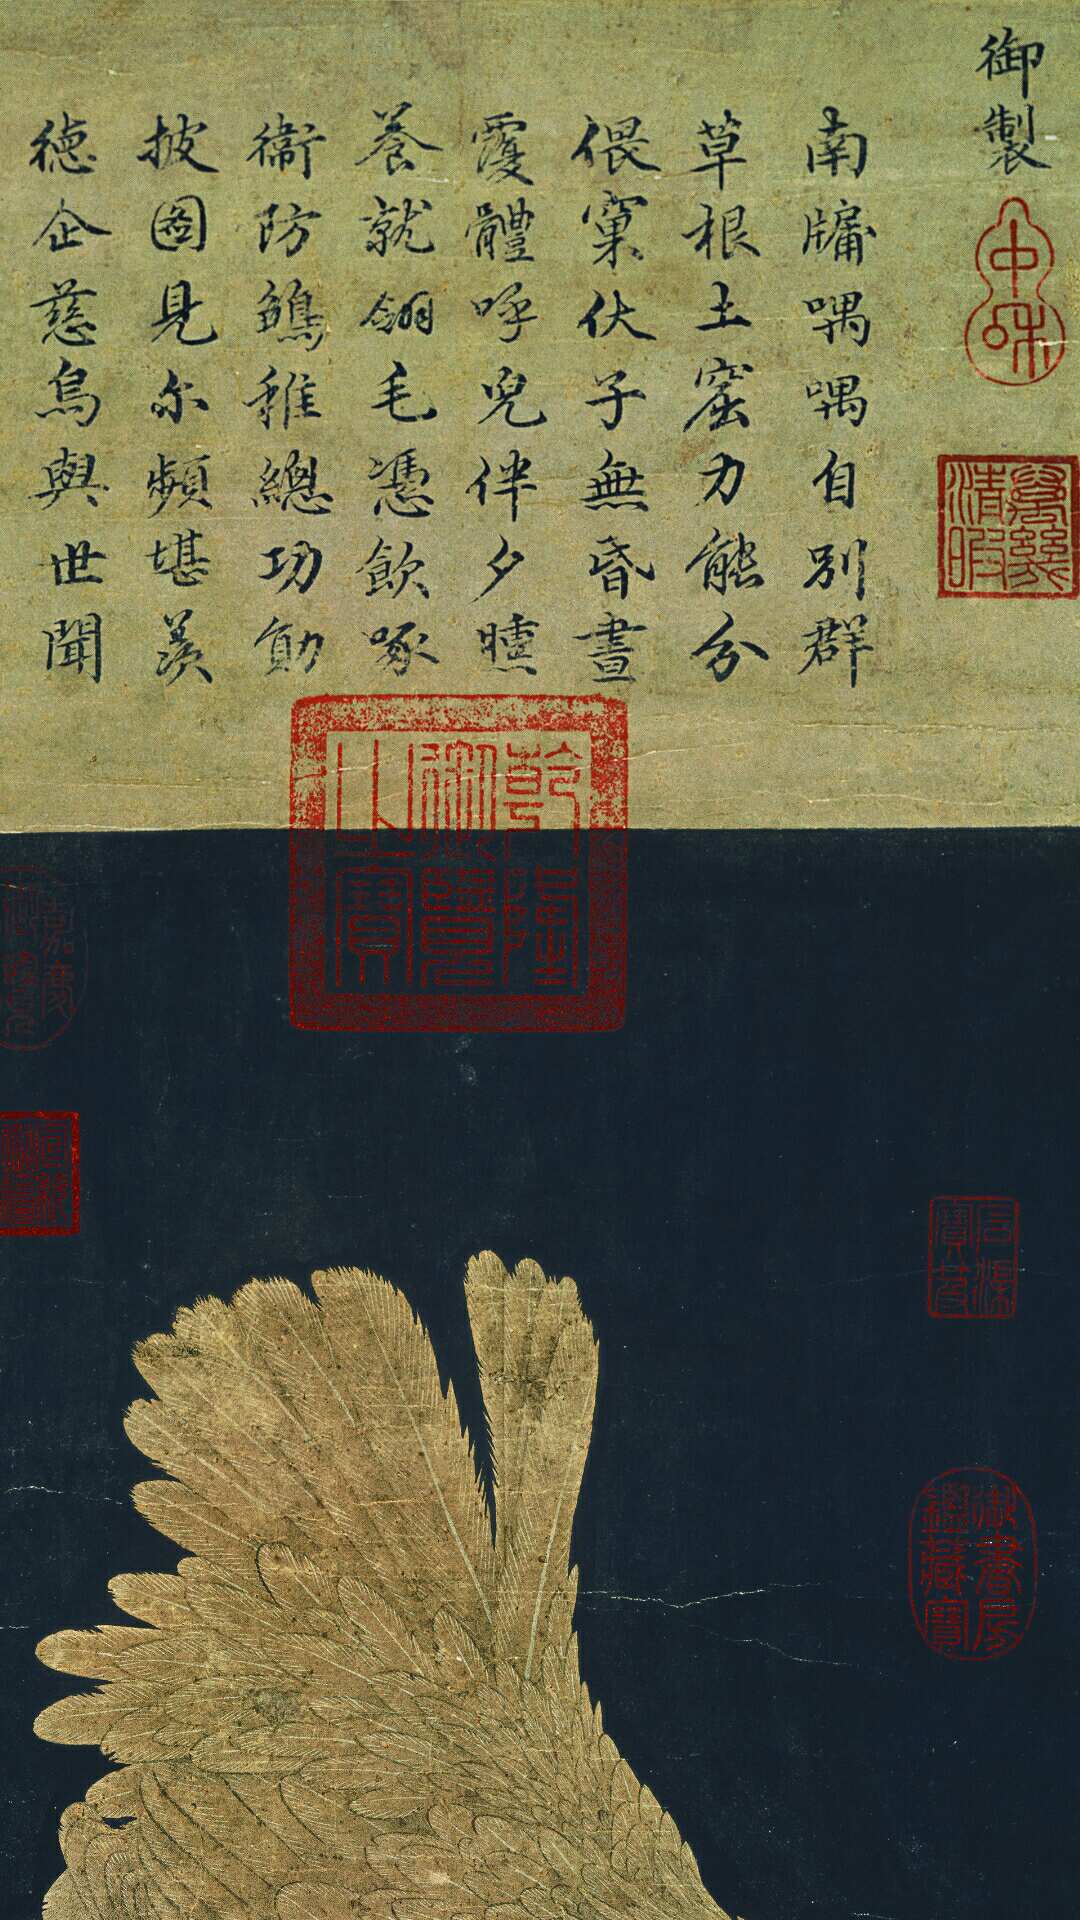 御製
南牖喁喁自別群
草根土窟力能分
偎窠伏子無昏晝
覆體呼兒伴夕曛
養就翎毛憑飲啄
衞防雛稚總功勛
披圖見尔頻堪羨
德企慈烏與世聞
中咊
萬幾清暇
乾隆御覽之寶
嘉慶御覽之寶
御書房鑑藏寶